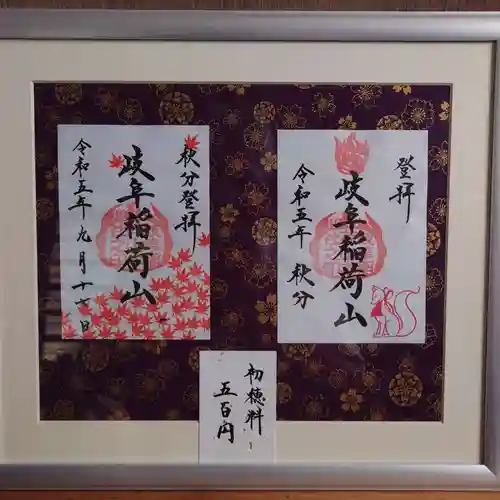 登拝
岐阜稲荷山
令和五年 秋分
秋分登拝
岐阜稲荷山
令和五年九月十七日
初穂料
五百円